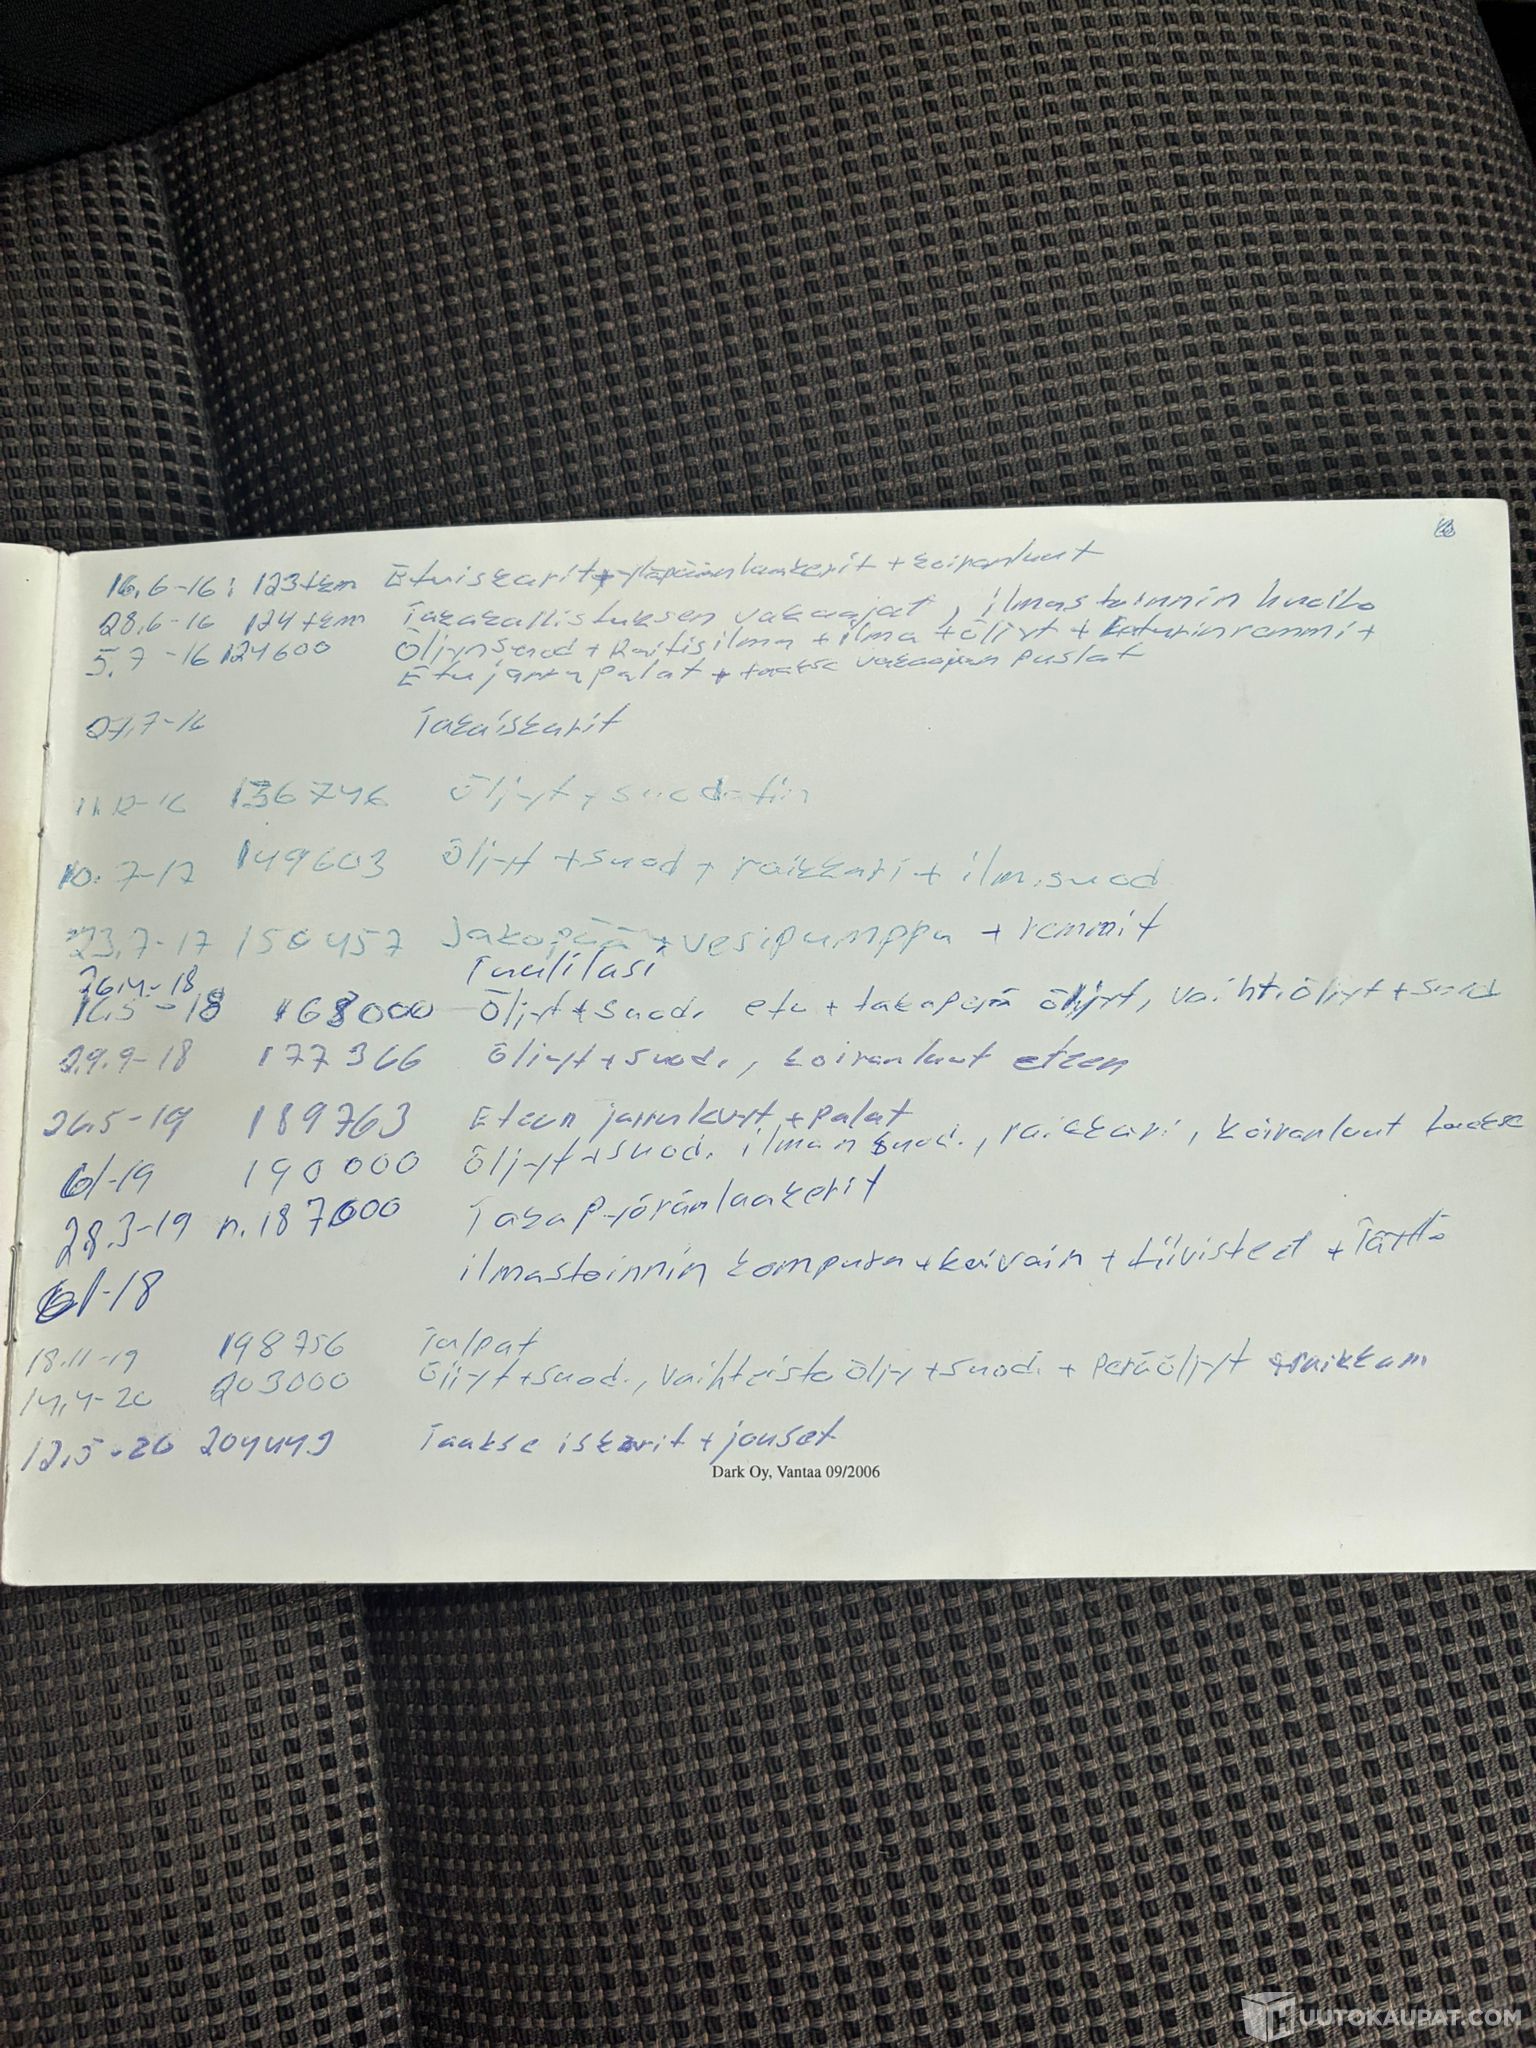 16.6-16: 123tkm Etuiskarit + yläpäänlaakerit + koiranluut
28.6-16 124tkm Takakallistuksen vakaajat, ilmastoinnin huolto
5.7-16 124600 Öljynsuod + Raitisilma + ilma + öljyt + Laturinremmi +
Etujarrupalat + taakse vakaajan puslat
27.7-16 Takaiskarit
11.12-16 136746 Öljyt + suodatin
10.7-17 149603 Öljyt + suod + raikkari + ilm.suod
23.7-17 150457 Jakopää + vesipumppu + remmit
26.4-18 Tuulilasi
16.5-18 168000 Öljyt + suod. etu + takaperä öljyt, vaiht.öljyt + suod
29.9-18 177366 Öljyt + suod., koiranluut eteen
26.5-19 189763 Eteen jarrulevyt + palat
6/-19 190000 Öljyt + suod. ilman suod., raikkari, koiranluut taakse
28.3-19 n.187000 Taka Pyöränlaakerit
6/-18 ilmastoinnin kompura + kuivain + tiivisteet + Täyttö
18.11-19 198756 Tulpat
14.4-20 203000 Öljyt + suod., vaihteistoöljy + suod. + Peräöljyt + raikkam
12.5-20 204449 Taakse iskarit + jouset
Dark Oy, Vantaa 09/2006
UUTOKAUPAT.COM